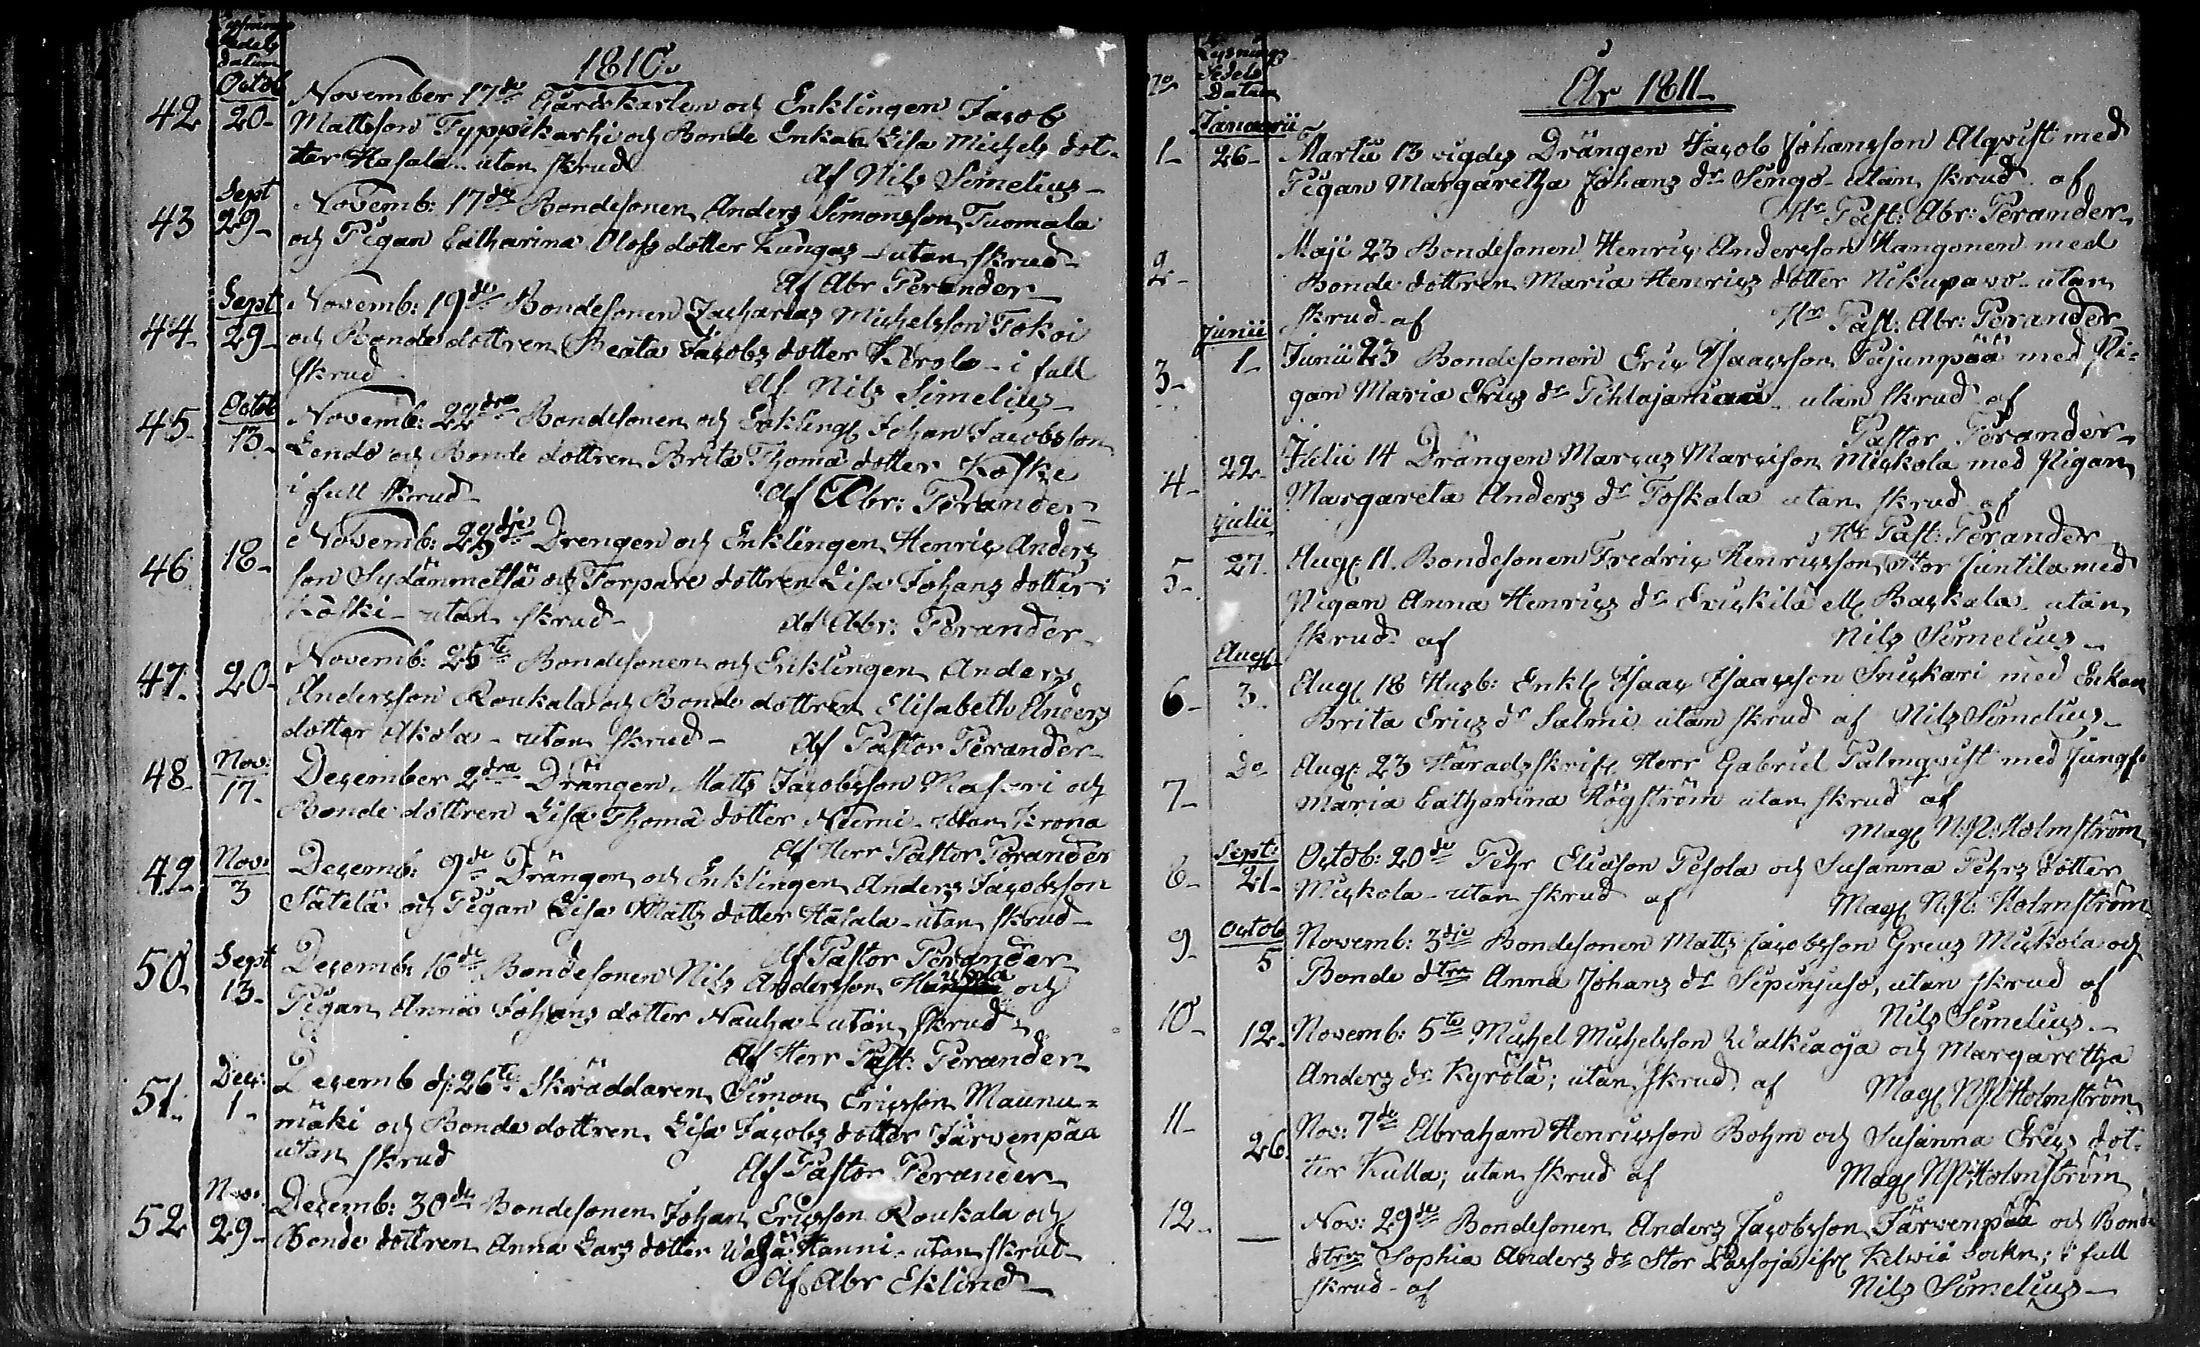 Lysnings
Sedels
datum
1810.
42 Octob 20 November 17de Gårdskarlen och Enklingen Jacob
Mattsson Typpikarhi och Bonde Enkan Lisa Michels dot-
ter Hasala utan skrud
Af Nils Simelius
43 Sept 29 Novemb: 17de Bondesonen Anders Simonsson Tuomala
och Pigan Catharina Olofs dotter Kungas utan skrud
Af Abr Perander
44 Sept 29 Novemb: 19de Bondesonen Zacharias Michelsson Tokoi
och Bonde dottren Beata Jacobs dotter Körolo i full
skrud
Af Nils Simelius
45 Octob 13 Novemb: 22dra Bondesonen och Enkling Johan Jacobsson
Lendo och Bonde dottren Brita Thomæ dotter Koske
i full skrud
Af Abr: Perander
46 18 Novemb: 23dje Drengen och Enklingen Henric Anders
son Sydänmetsä och Torpare dottren Lisa Johans dotter
Koski utan skrud
Af Abr: Perander
47 20 Novemb: 25te Bondesonen och Enklingen Anders
Andersson Roukala och Bonde dottren Elisabeth Anders
dotter Akola utan skrud
Af Pastor Perander
48 Nov: 17 December 2dra Drängen Matts Jacobsson och
Bonde dottren Lisa Thomæ dotter Niemi utan Krona
Af Herr Pastor Perander
49 Nov: 3 Decemb: 9de Drängen och Enklingen Anders Jacobsson
Sätelä och Pigan Lisa Matts dotter Hasala utan skrud
Af Pastor Perander
50 Sept 13 Decemb: 16de Bondesonen Nils Andersson och
Pigan Anna Johans dotter Nauha utan skrud
Af Herr Past: Perander
51 Dec: 1 Decemb d: 26te Skräddaren Simon Ericsson Maunu=
mäki och Bonde dottren Lisa Jacobs dotter Järvenpää
utan skrud
Af Pastor Perander
52 Nov: 29 Decemb: 30de Bondesonen Johan Ericsson Roukala och
Bonde dottren Anna Lars dotter Wähä Hanni utan skrud
Af Abr Eklind
No Lysnings
Sedels
Datum
År 1811
1 Januarii 26 Martii 13 vigdes Drängen Jacob Johansson Alqvist med
Pigan Margaretha Johans dr Singo utan skrud af
Hr Past: Abr: Perander
2 Maji 23 Bondesonen Henric Andersson Hangonen med
Bonde dottren Maria Henrics dotter Nikupavo utan
skrud af
Hr Past: Abr: Perander
3 Junii 1 Junii 23 Bondesonen Eric Isaacsson med Pi-
gan Maria Erics dr Pihlajamaa utan skrud af
Pastor Perander
4 22 Julii 14 Drängen Marcus Marcisson Mickola med Pigan
Margareta Anders dr Toskala utan skrud af
Hr Past: Perander
5 Julii 27 Aug: 11. Bondesonen Fredric Henricsson Stor Juntila med
Pigan Anna Henrics dr Erickilä ell: Backala utan
skrud af
Nils Simelius
6 Aug: 3 Aug: 18 Husb: Enkl: Isaac Isaacsson Snickari med Enkan
Brita Erics dr Salmi utan skrud af Nils Simelius
7 Do Aug: 23 Häradsskrif: Herr Gabriel Palmqvist med Jungf:
Maria Catharina Högström utan skrud af
Mag: N: R: Holmström
8 Sept: 21 Octob: 20de Pehr Eliasson Pesola och Susanna Pehrs dotter
Mickola utan skrud af
Mag: N: R: Holmström
9 Octob 5 Novemb: 3dje Bondesonen Matts Jacobsson Greus Mickola och
Bonde dtren Anna Johans dr Sipinjuso, utan skrud af
Nils Simelius
10 12 Novemb: 5te Michel Michelsson Walkiaoja och Margaretha
Anders dr Kyrölä; utan skrud af
Mag: N: R: Holmström
11 26 Nov: 7de Abraham Henricsson Bohm och Susanna Erics dot-
ter Kulla; utan skrud af
Mag: N: R: Holmström
12 — Nov: 29de Bondesonen Anders Jacobsson Järvenpää och Bonde
dtren Sophia Anders dr Stor ifr: Kelviå Sockn; i full
skrud af
Nils Simelius